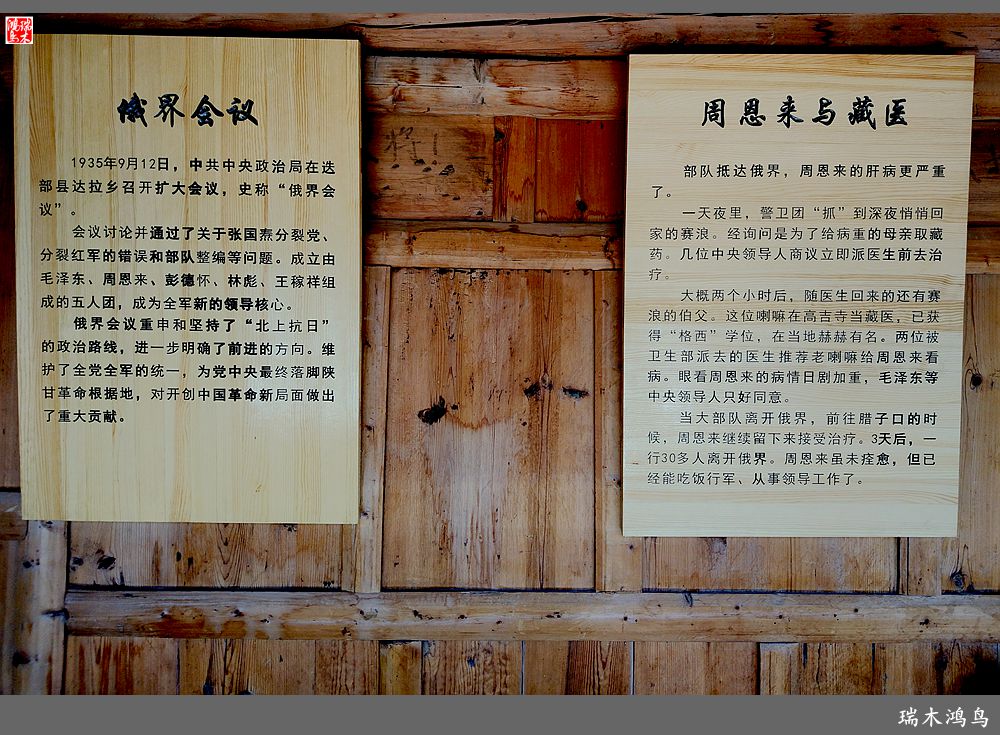 瑞木
鸿鸟
俄界会议
1935年9月12日，中共中央政治局在迭
部县达拉乡召开扩大会议，史称“俄界会
议”。
会议讨论并通过了关于张国焘分裂党、
分裂红军的错误和部队整编等问题。成立由
毛泽东、周恩来、彭德怀、林彪、王稼祥组
成的五人团，成为全军新的领导核心。
俄界会议重申和坚持了“北上抗日”
的政治路线，进一步明确了前进的方向。维
护了全党全军的统一，为党中央最终落脚陕
甘革命根据地，对开创中国革命新局面做出
了重大贡献。
周恩来与藏医
部队抵达俄界，周恩来的肝病更严重
了。
一天夜里，警卫团“抓”到深夜悄悄回
家的赛浪。经询问是为了给病重的母亲取藏
药。几位中央领导人商议立即派医生前去治
疗。
大概两个小时后，随医生回来的还有赛
浪的伯父。这位喇嘛在高吉寺当藏医，已获
得“格西”学位，在当地赫赫有名。两位被
卫生部派去的医生推荐老喇嘛给周恩来看
病。眼看周恩来的病情日剧加重，毛泽东等
中央领导人只好同意。
当大部队离开俄界，前往腊子口的时
候，周恩来继续留下来接受治疗。3天后，一
行30多人离开俄界。周恩来虽未痊愈，但已
经能吃饭行军、从事领导工作了。
将！
瑞木鸿鸟